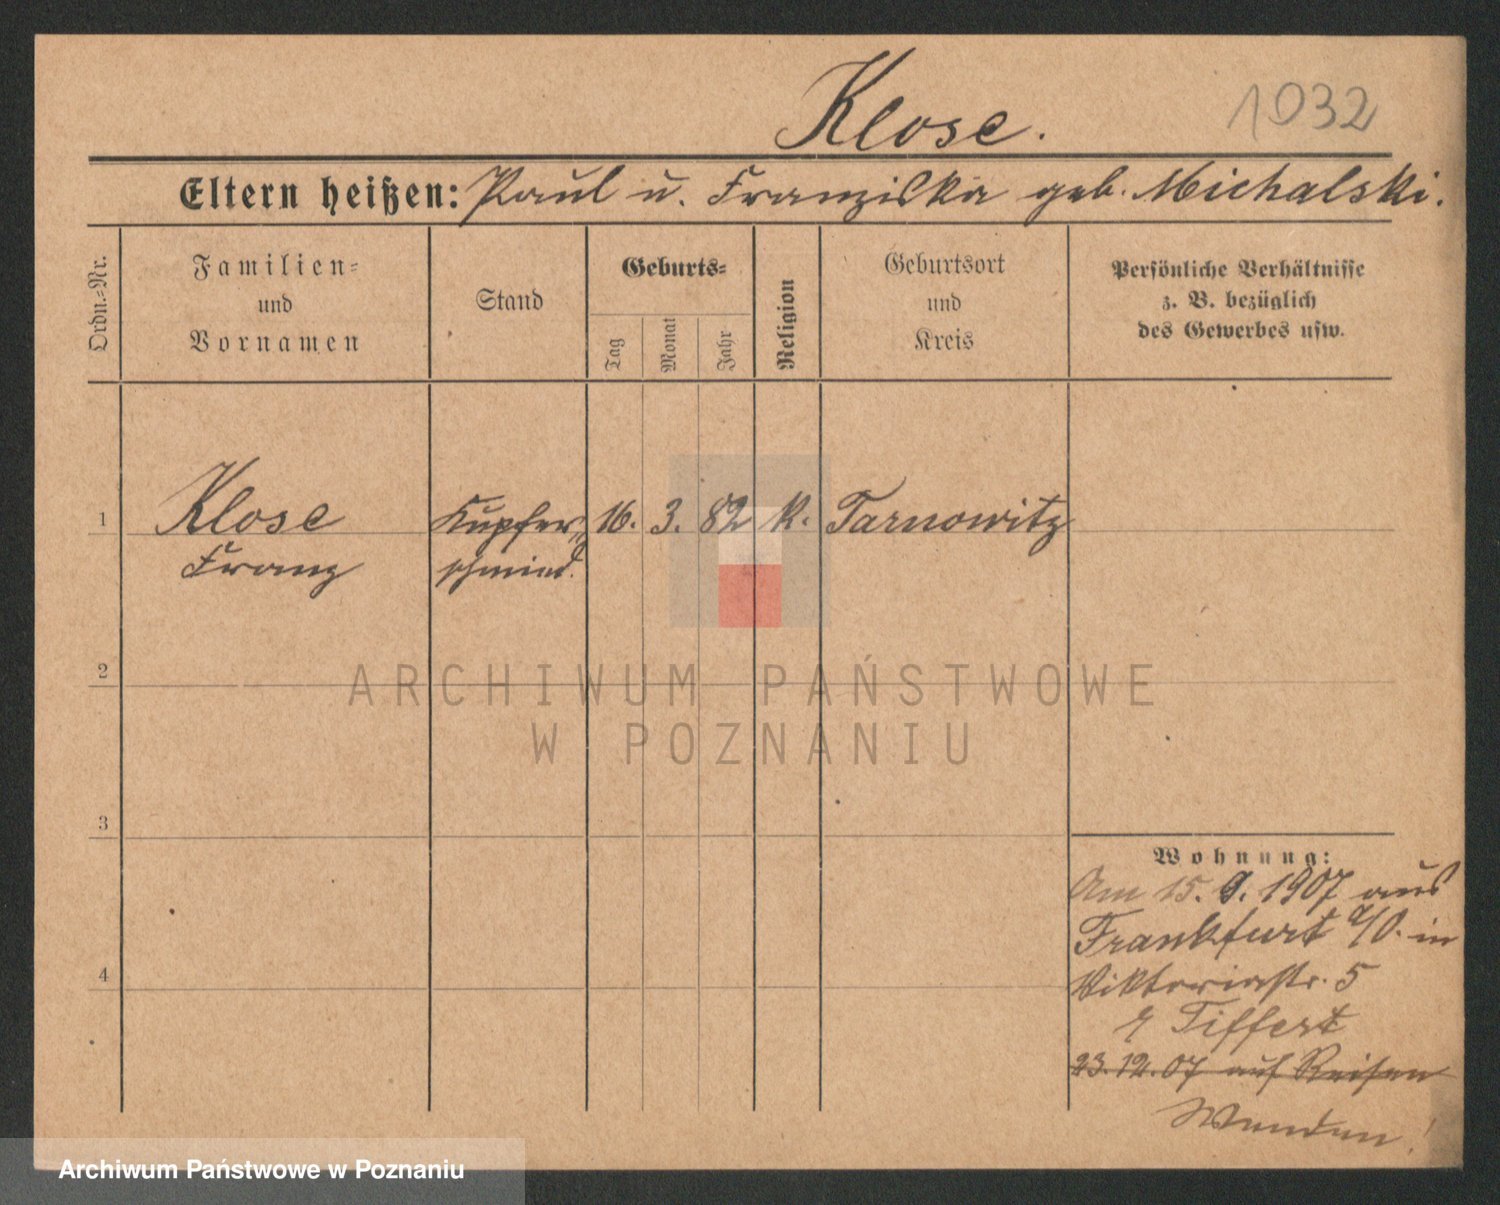 Klose.
1032
Eltern heißen: Paul u. Franziska geb. Michalski.
Ordn.=Nr.
Familien=
und
Vornamen
Stand
Geburts=
Tag
Monat
Jahr
Religion
Geburtsort
und
Kreis
Persönliche Verhältnisse
z. B. bezüglich
des Gewerbes usw.
1 Klose Kupfer= 16. 3. 82 k. Tarnowitz
Franz schmied.
2
3
4
Wohnung:
Am 15. 9. 1907 aus
Frankfurt a/O. in
Viktoriastr. 5
Tiffert
23.12.07 auf Reisen
Wenden!
ARCHIWUM PAŃSTWOWE
W POZNANIU
Archiwum Państwowe w Poznaniu